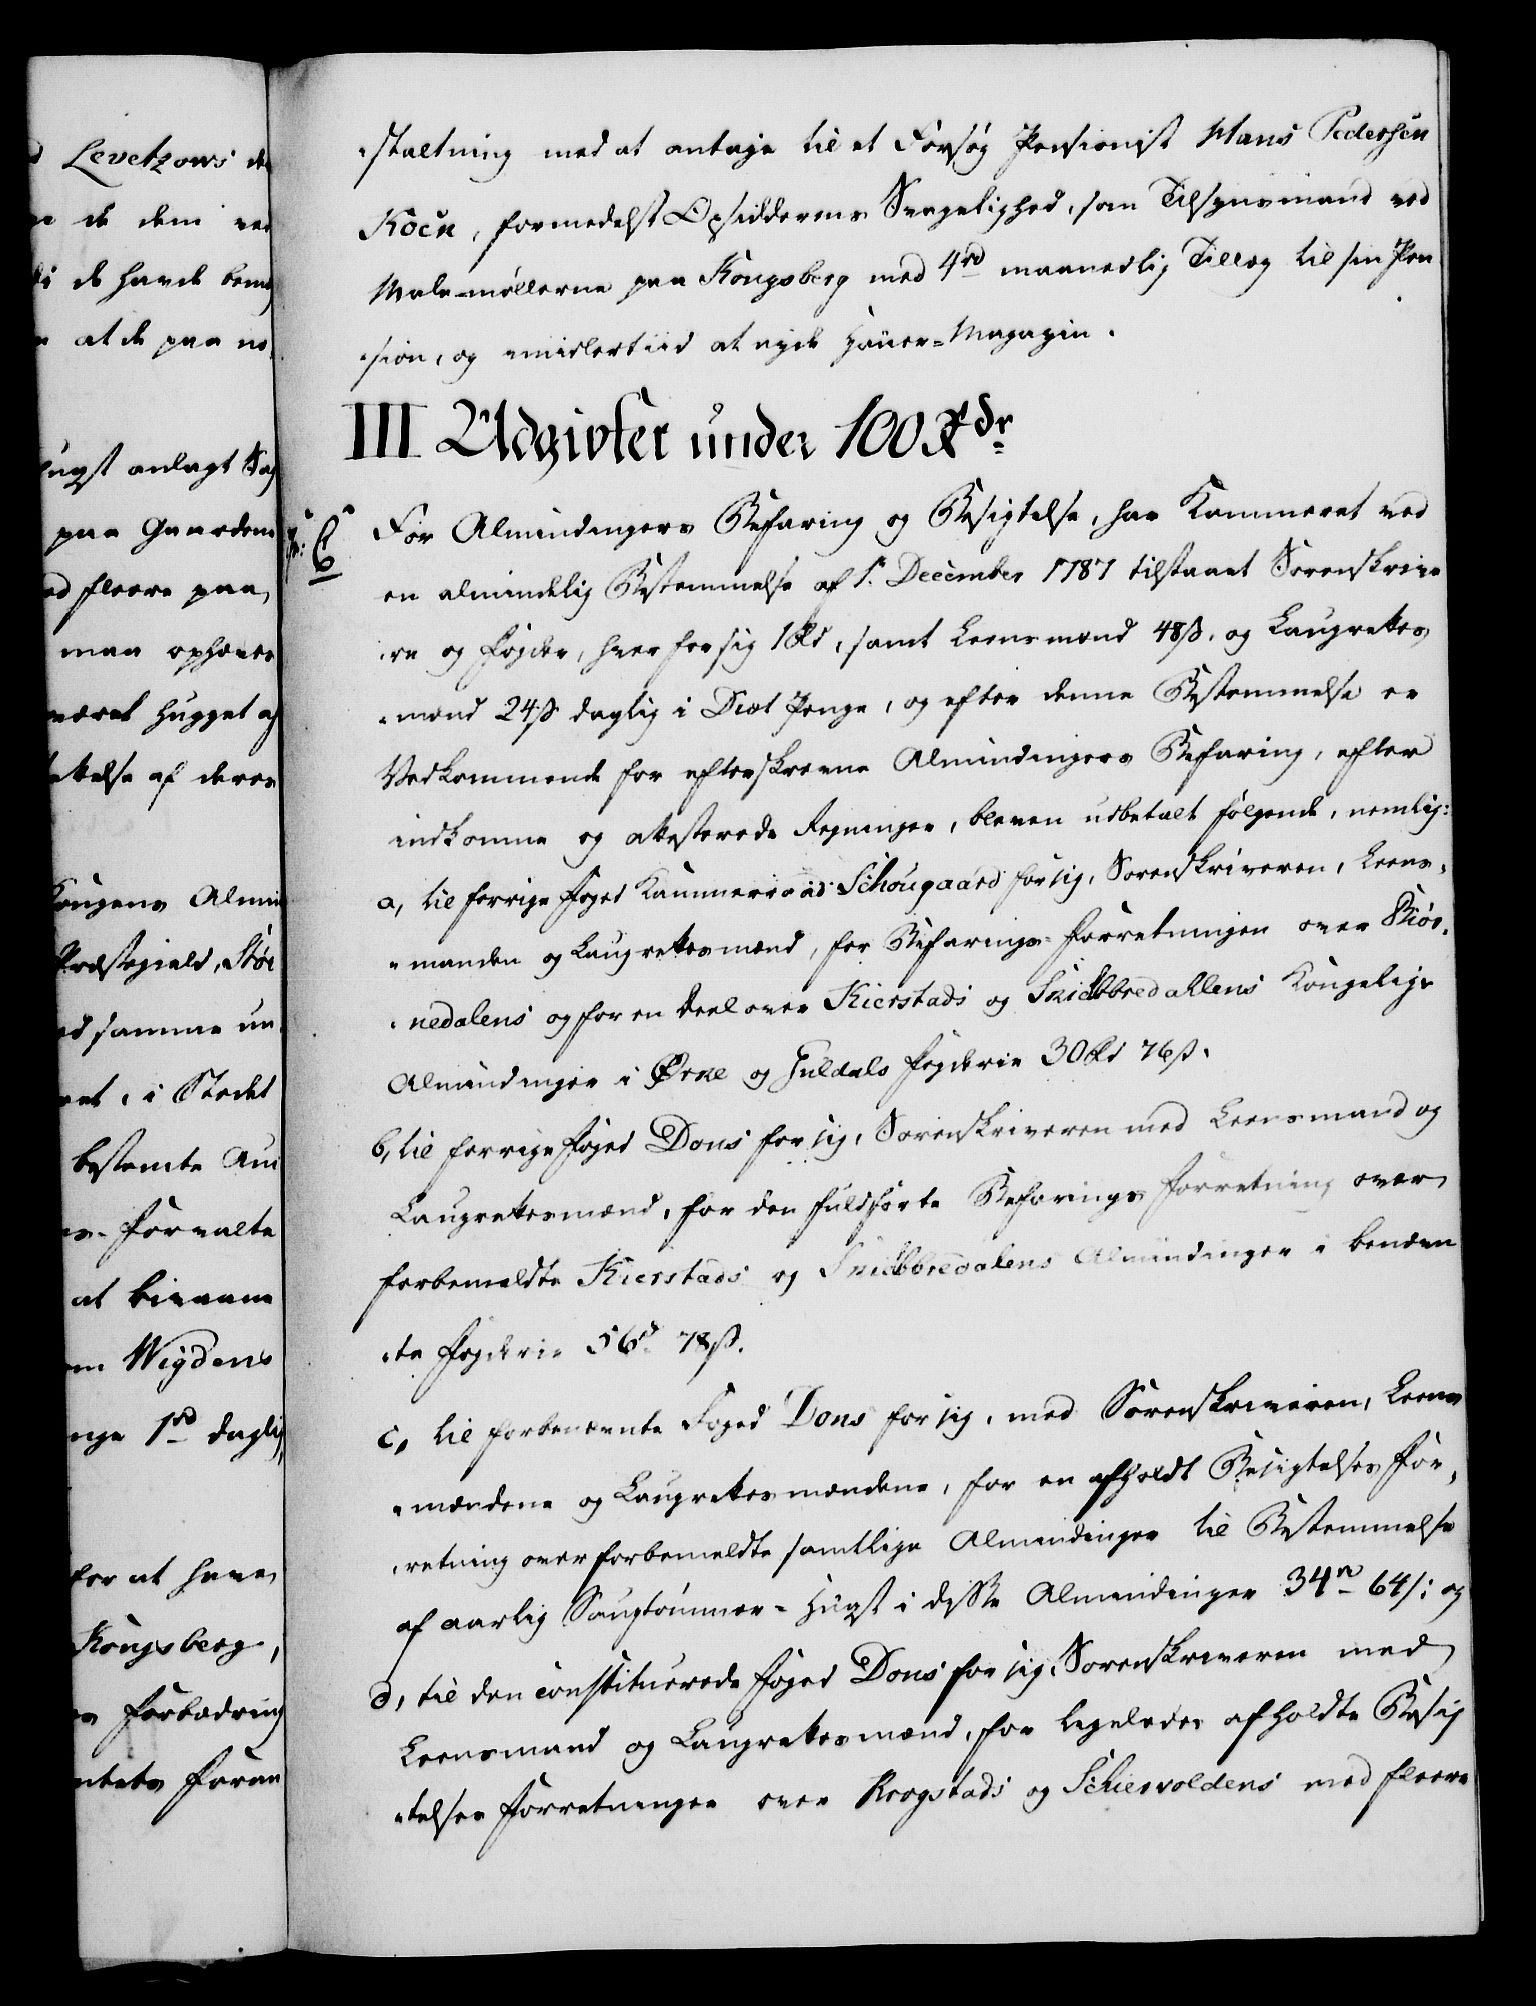 Levetzows de
de dem ved
de havde bemey
at de paa no
hugst anlagt Sag
paa Gaardene
fleere paa,
man ophæves
været hugget af
af deres
Kongens Almin
Præstegield, Stør
samme un
i Stedet
bestemte Aur
forvalte
at bivaane
Wigdens
1rd daglig,
for at have
Kongsberg,
Forbedring
foran
staltning med at antage til et Forsøg Pensionist Hans Pedersen
Kock, formedelst Opsidderens Svagelighed, som Tilsynsmand ved
Male-møllerne paa Kongsberg med 4rd maanedlig Tillæg til sin Pen
sion, og imidlertiid at nyde Haver-Magazin.
III Udgivter under 100 Rdr
For Almindingers Befaring og Besigtelse, har Kammeret ved
en almindelig Bestemmelse af 1. December 1787 tilstaaet Sorenskrive
re og Fogder, hver for sig 1 Rd, samt Leensmænd 48 ß. og Laugrettes
mænd 24 ß daglig i Diæt Penge, og efter denne Bestemmelse er
Vedkommende for efterskrevne Almindingers Befaring, efter
indkomne og attesterede Regninger, bleven udbetalt følgende, nemlig:
a, til forrige Foged Kammerraad Schougaard for sig, Sorenskriveren, Leens-
manden og Laugrettesmænd, for Befarings-Forretningen over Biør-
nedalens og for en Deel over Kierstads og Snidbbredallens Kongelige
Almindinger i Orke og Guldals Fogderie 30 Rd 76 ß.
b, til forrige Foged Dons for sig, Sorenskriveren med Leensmand og
Laugrettesmænd, for den fuldførte Befarings Forretning over
forbemeldte Kierstads og Snidbbredalens Almindinger i benævn
te Fogderie 56d 78 ß.
c, til forbenævnte Foged Dons for sig, med Sorenskriveren, Leens
mændene og Laugrettesmændene, for en afholdt Besigtelses For-
retning over forbemeldte samtlige Almindinger til Bestemmelse
af aarlig Saugtømmer-Hugst i disse Almindinger 34rd 64 ß: og
d, til den constituerede Foged Dons for sig, Sorenskriveren med
Leensmand og Laugrettesmænd, for ligeledes afholdte Besig
telses Forretninger over Krogstads og Schiervoldens med fleere